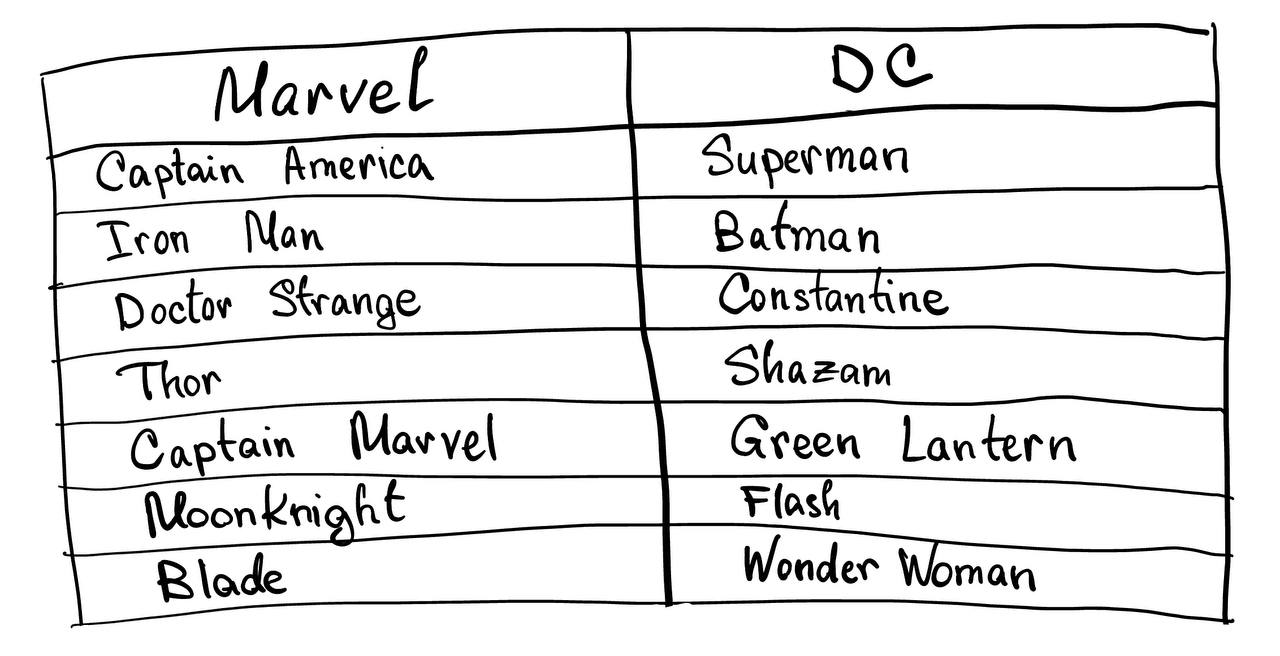 Marvel DC
Captain America Superman
Iron Man Batman
Doctor Strange Constantine
Thor Shazam
Captain Marvel Green Lantern
Moonknight Flash
Blade Wonder Woman